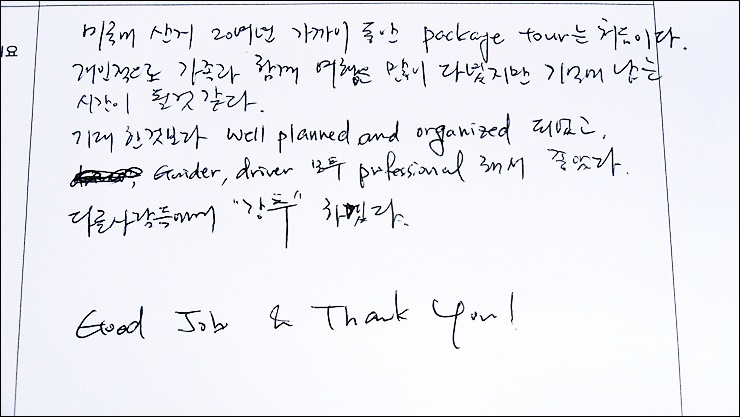 미국에 산지 20여년 가까이 동안 package tour는 처음이다.
개인적으로 가족과 함께 여행은 많이 다녔지만 기억에 남는
시간이 될것 같다.
기대 한것보다 well planned and organized 되었고,
Guider, driver 모두 professional 해서 좋았다.
다른사람들에게 "강추" 하겠다.
Good Job & Thank You!